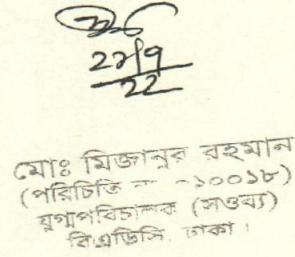 ২৭/৭
২২
মোঃ মিজানুর রহমান
(পরিচিতি নং -১০০১৮)
যুগ্মপরিচালক (সওব্য)
বিএডিসি, ঢাকা।